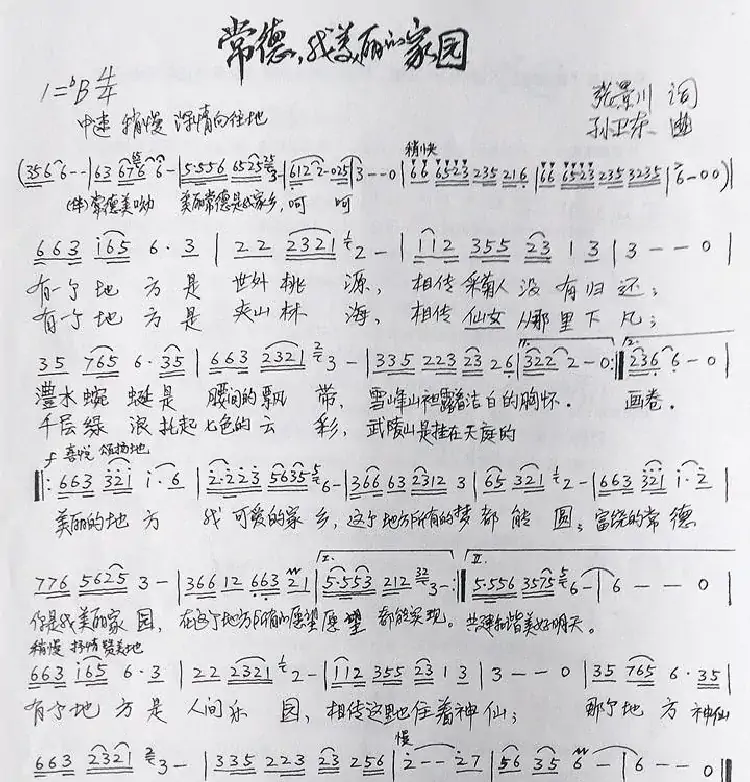 常德,我美丽的家园
1=♭B 4/4
张景川 词
中速 稍慢 深情向往地
孙卫东 曲
稍快
(伴)常德美呦 美丽常德是我家乡,呵 呵
663 i65 6·3 | 22 2321 2 - | 112 355 23 1 3 | 3 - - 0 |
有一个地方是世外桃源,相传采菊人没有归还;
有一个地方是夹山林海,相传仙女从那里下凡;
35 765 6·35 | 663 2321 3 - | 335 223 23 26 | 322 2 - 0 :‖ 236 6 - 0 |
澧水蜿蜒是腰间的飘带,雪峰山袒露着洁白的胸怀. 画卷.
千层绿浪托起七色的云彩,武陵山是挂在天庭的
f 喜悦 颂扬地
美丽的地方 我可爱的家乡,这个地方所有的梦都能圆;富饶的常德
I. II.
你是我美丽家园,在这个地方所有的愿望愿望都能实现。共建和谐美好明天。
稍慢 抒情 赞美地
663 i65 6·3 | 22 2321 2 - | 112 355 23 13 | 3 - - 0 | 35 765 6·35 |
有个地方是人间乐园,相传这里住着神仙; 那个地方神仙
慢
663 2321 3 - | 335 223 23 256 | 2 - - 27 | 56 35 6 - | 6 - - 0 |